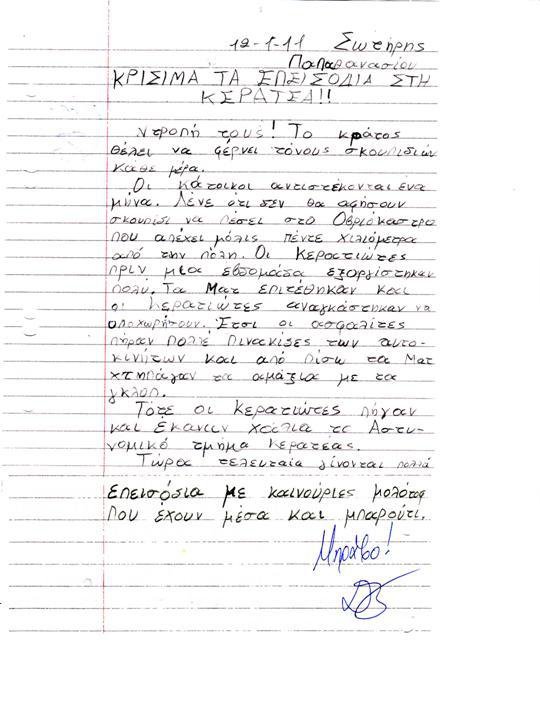 12-1-11 Σωτήρης
Παπαθανασίου
ΚΡΙΣΙΜΑ ΤΑ ΕΠΕΙΣΟΔΙΑ ΣΤΗ
ΚΕΡΑΤΕΑ!!
Ντροπή τους! Το κράτος
θέλει να φέρνει τόνους σκουπιδιών
κάθε μέρα.
Οι κάτοικοι αντιστέκονται ένα
μήνα. Λένε ότι δεν θα αφήσουν
σκουπιδι να πέσει στο Οβριόκαστρο
που απέχει μόλις πέντε χιλιόμετρα
από την πόλη. Οι Κερατιώτες
πριν μια εβδομάδα εξοργίστηκαν
πολύ. Τα Ματ επιτέθηκαν και
οι κερατιώτες αναγκάστηκαν να
υποχωρήσουν. Έτσι οι ασφαλίτες
πήραν πολλέ πινακίδες των αυτο-
κινήτων και από πίσω τα Ματ
χτηπάγαν τα αμάξια με τα
γκλοπ.
Τότε οι Κερατιώτες πήγαν
και έκαναν χάλια το Αστυ-
νομικό τμήμα Κερατέας.
Τώρα τελευταία γίνονται πολλά
επεισόδια με καινούριες μολότοφ
που έχουν μέσα και μπαρούτι.
Μπράβο!